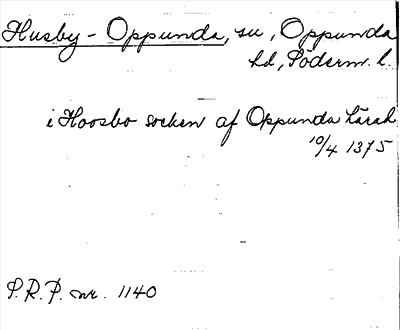 Husby-Oppunda, sn, Oppunda
hd, Söderm. l.
i Hoosbo socken af Oppunda härad
10/4 1375
P.R.P. nr. 1140